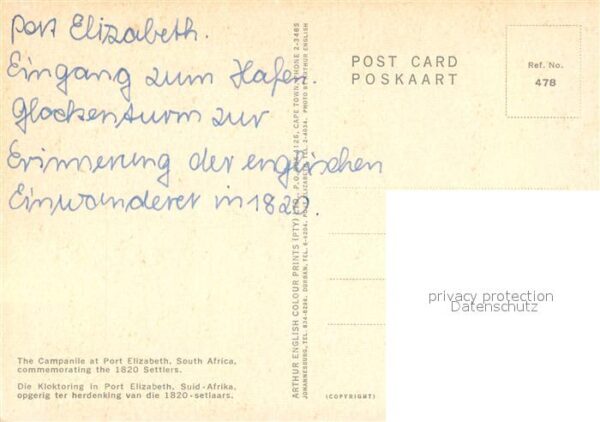 Port Elizabeth.
Eingang zum Hafen.
Glockenturm zur
Erinnerung der englischen
Einwanderer in 1820.
POST CARD
POSKAART
Ref. No.
478
privacy protection
Datenschutz
The Campanile at Port Elizabeth, South Africa,
commemorating the 1820 Settlers.
Die Kloktoring in Port Elizabeth, Suid-Afrika,
opgerig ter herdenking van die 1820-setlaars.
ARTHUR ENGLISH COLOUR PRINTS (PTY) LTD., P.O. CAPE TOWN. PHONE 2-3465
JOHANNESBURG, TEL. 834-6296. DURBAN, TEL. 6-4204. PORT ELIZABETH, TEL. 2-4034. PHOTO BY ARTHUR ENGLISH
(COPYRIGHT)